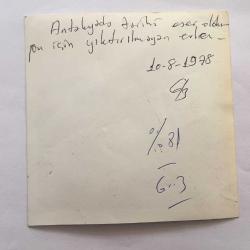 Antakyada tarihi eser oldu
ğu için yıktırılmayan evler_
10-8-1978
% 81
6.3